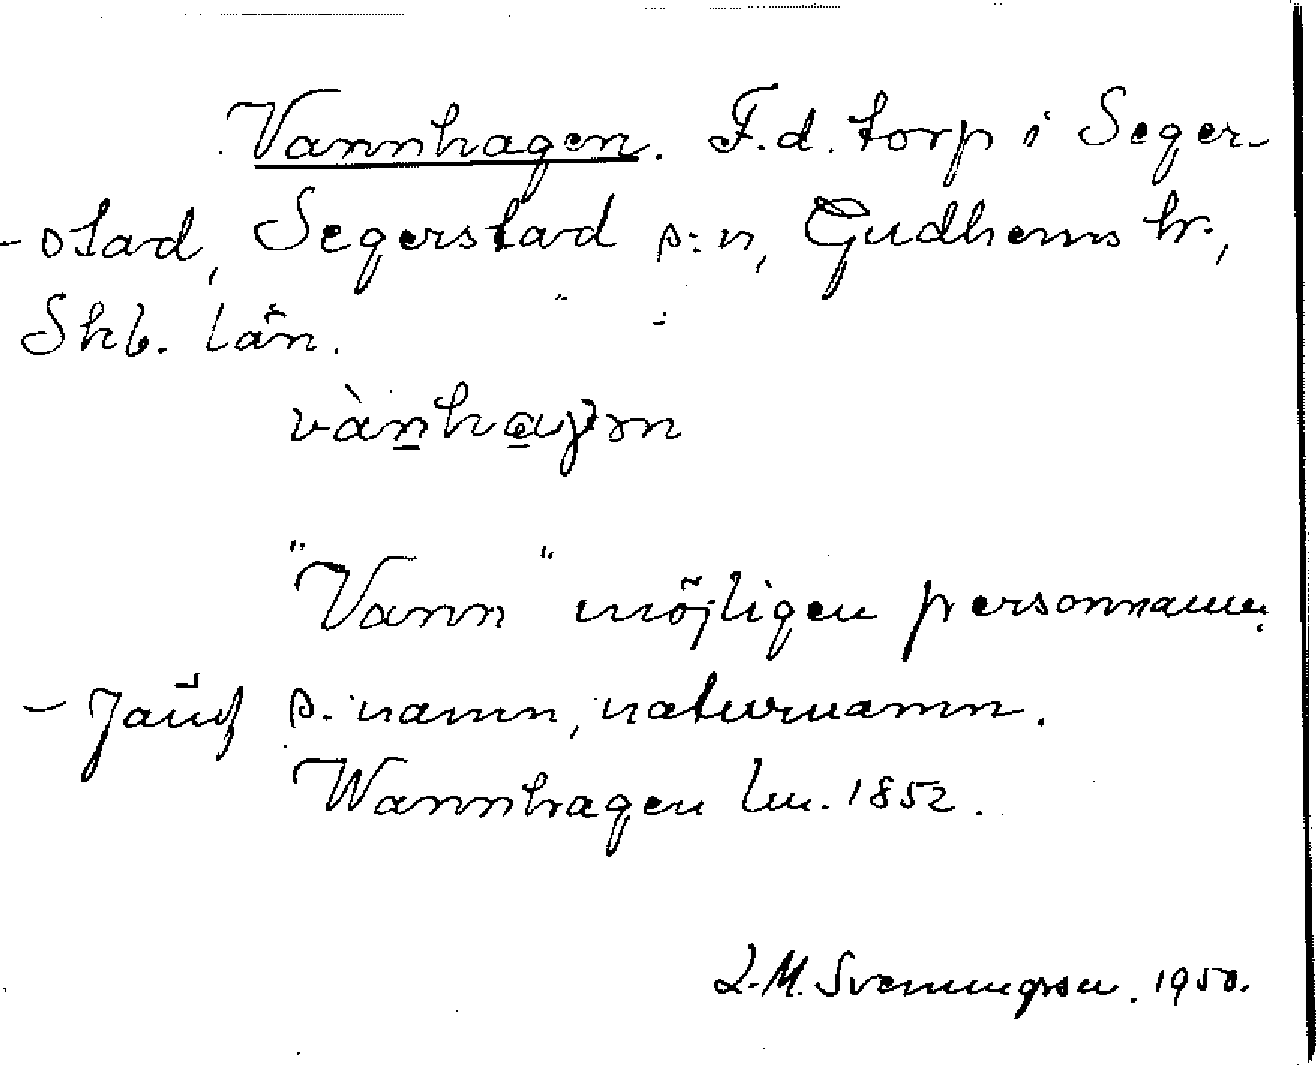 Vannhagen. F.d. torp i Seger-
-stad, Segerstad s:n, Gudhems hr.,
Skb. län.
vànhaɡən
"Vann" möjligen personnamn.
- Jämf s. namn, naturnamn.
Wannhagen lm. 1852.
L.M. Svenungsson. 1950.